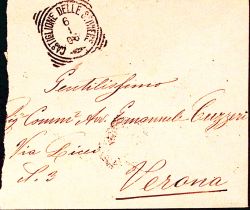 CASTIGLIONE DELLE STIVIERE
6
1
08
Gentilissimo
Sig. Comm. Av. Emanuele Cuzzeri
Via Ricci
N. 3
Verona